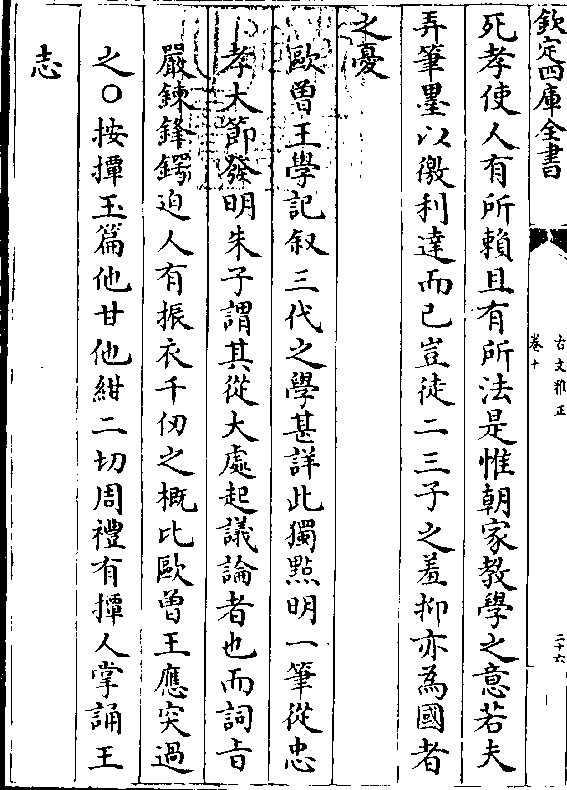 欽定四庫全書
古文雅正
卷十
二十六
死孝使人有所賴且有所法是惟朝家教學之意若夫
弄筆墨以徼利達而已豈徒二三子之羞抑亦為國者
之憂
歐曾王學記叙三代之學甚詳此獨㸃明一筆從忠
孝大節發明朱子謂其從大處起議論者也而詞㫖
嚴鍊鋒鍔迫人有振衣千仞之概比歐曾王應突過
之○按撢玉篇他甘他紺二切周禮有撢人掌誦王
志